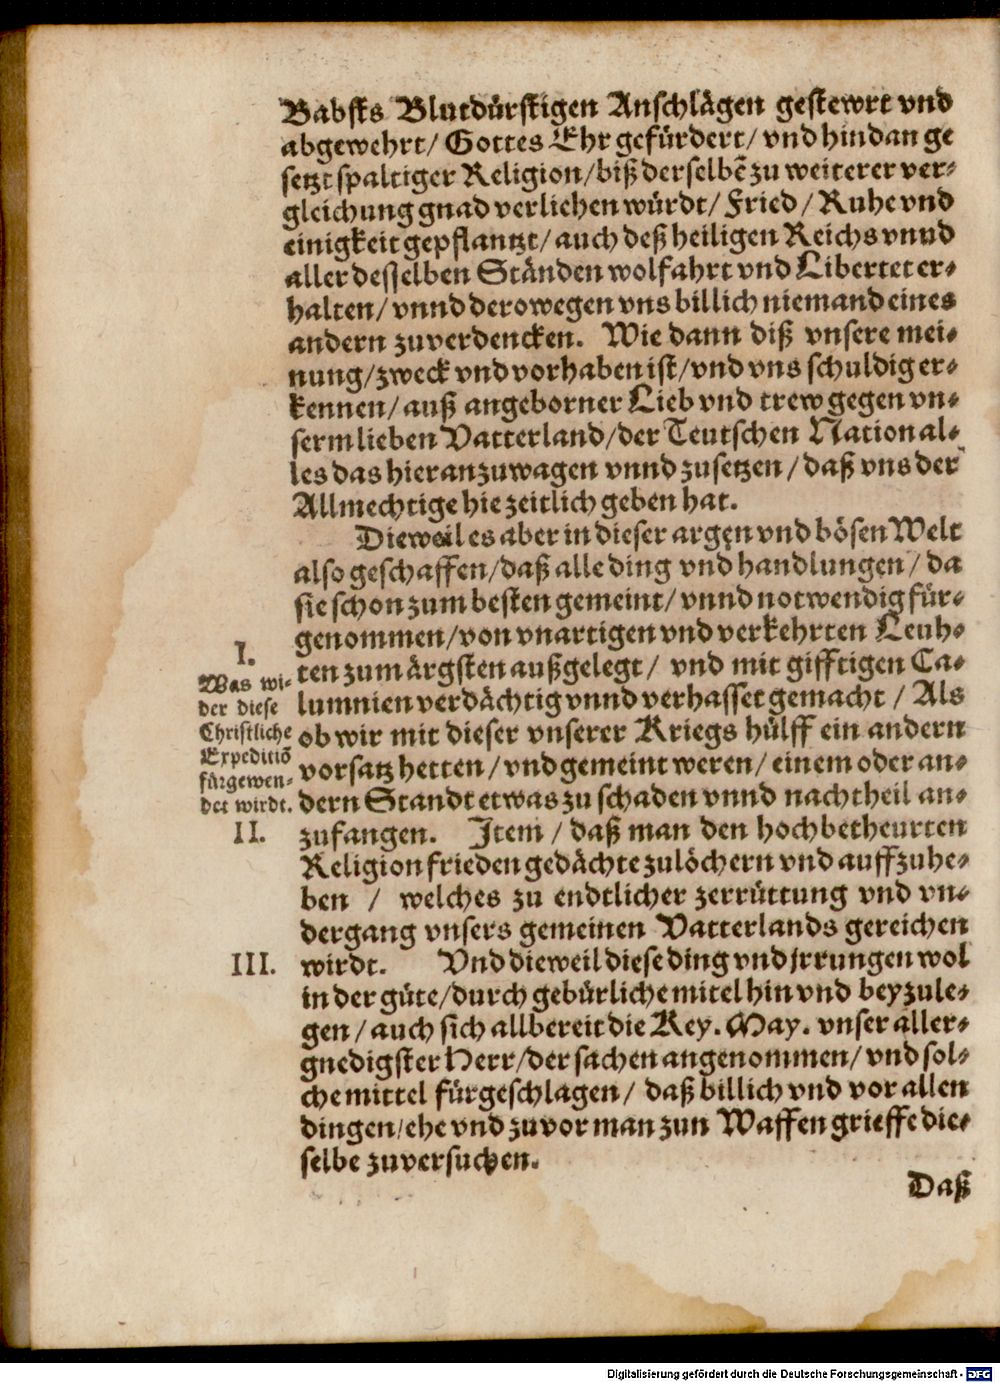 Babsts Blutdürstigen Anschlägen gestewrt vnd
abgewehrt/ Gottes Ehr gefürdert/ vnd hindan ge
setzt spaltiger Religion/ biß derselbẽ zu weiterer ver-
gleichung gnad verliehen würdt/ Fried/ Ruhe vnd
einigkeit gepflantzt/ auch deß heiligen Reichs vnnd
aller desselben Ständen wolfahrt vnd Libertet er-
halten/ vnnd derowegen vns billich niemand eines
andern zuverdencken. Wie dann diß vnsere mei-
nung/ zweck vnd vorhaben ist/ vnd vns schuldig er-
kennen/ auß angeborner Lieb vnd trew gegen vn-
serm lieben Vatterland/ der Teutschen Nation al-
les das hieran zuwagen vnnd zusetzen/ daß vns der
Allmechtige hie zeitlich geben hat.
Dieweil es aber in dieser argen vnd bösen Welt
also geschaffen/ daß alle ding vnd handlungen/ da
sie schon zum besten gemeint/ vnnd notwendig für-
genommen/ von vnartigen vnd verkehrten Leuh-
ten zum ärgsten außgelegt/ vnd mit gifftigen Ca-
lumnien verdächtig vnnd verhasset gemacht/ Als
ob wir mit dieser vnserer Kriegs hülff ein andern
vorsatz hetten/ vnd gemeint weren/ einem oder an-
dern Standt etwas zu schaden vnnd nachtheil an-
I.
Was wi-
der diese
Christliche
Expeditiõ
fürgewen-
det wirdt.
II.
zufangen. Item/ daß man den hochbetheurten
Religion frieden gedächte zulöchern vnd auffzuhe-
ben / welches zu endtlicher zerrüttung vnd vn-
dergang vnsers gemeinen Vatterlands gereichen
III.
wirdt. Vnd dieweil diese ding vnd jrrungen wol
in der güte/ durch gebürliche mitel hin vnd bey zule-
gen/ auch sich allbereit die Key. May. vnser aller-
gnedigster Herr/ der sachen angenommen/ vnd sol-
che mittel fürgeschlagen/ daß billich vnd vor allen
dingen/ ehe vnd zuvor man zun Waffen grieffe die-
selbe zuversuchen.
Daß
Digitalisierung gefördert durch die Deutsche Forschungsgemeinschaft - DFG